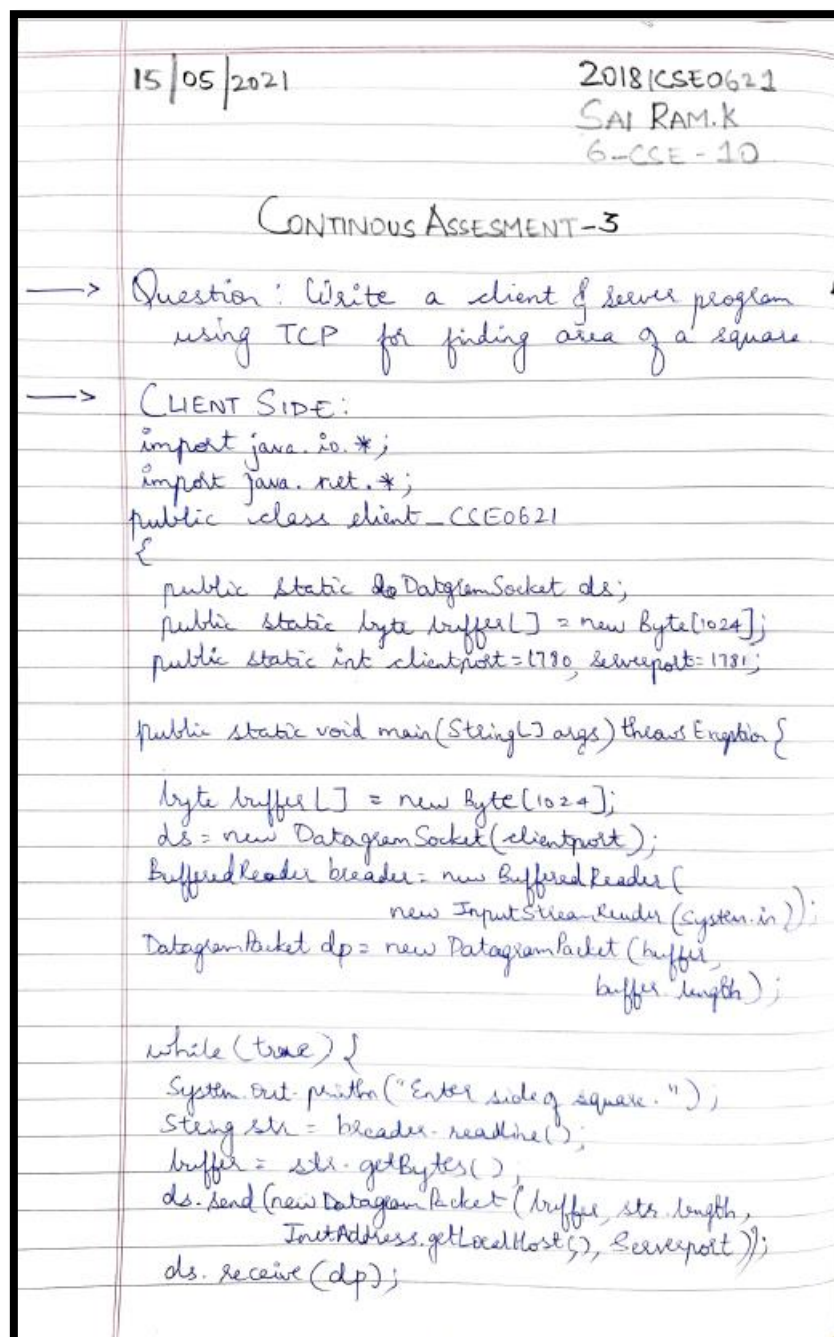 15/05/2021
20181CSE0621
SAI RAM.K
6-CSE-10
CONTINOUS ASSESMENT-3
Question: Write a client & server program
using TCP for finding area of a square.
CLIENT SIDE:
import java.io.*;
import java.net.*;
public class client_CSE0621
{
public static DatgramSocket ds;
public static byte buffer[] = new Byte[1024];
public static int clientport=1780, serverport=1781;
public static void main(String[] args) throws Exeption {
byte buffer[] = new Byte[1024];
ds = new DatagramSocket(clientport);
BufferedReader breader = new BufferedReader(
new InputStreamReader(System.in));
DatagramPacket dp = new DatagramPacket(buffer,
buffer.length);
while(true) {
System.out.println("Enter side of square.");
String str = breader.readline();
buffer = str.getBytes();
ds.send(new DatagramPacket(buffer, str.length,
InetAddress.getLocalHost(), Serverport));
ds.receive(dp);